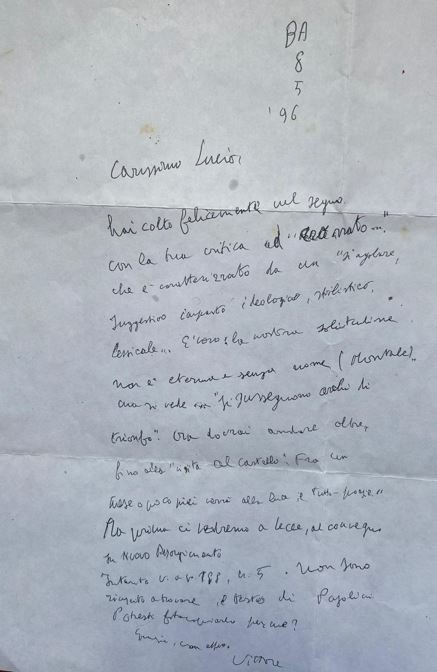 BA
8
5
'96
Carissimo Lucio,
hai colto felicemente nel segno
con la tua critica ad "
che è caratterizzato da un "singolare,
suggestivo impasto ideologico, stilistico,
lessicale... E' vero: la nostra solitudine
non è eterna e senza nome (Montale)..
"si susseguono archi di
trionfo". Ora dovrai andare oltre,
fino alla "visita al castello". Fra un
mese o poco più verrà alla luce il
Ma prima ci vedremo a Lecce, al convegno
su Nuovo Risorgimento
Intanto n. 5. Non sono
riuscito a trovare il testo di Pasolini
Potresti fotocopiarlo per me?
Grazie, con affetto,